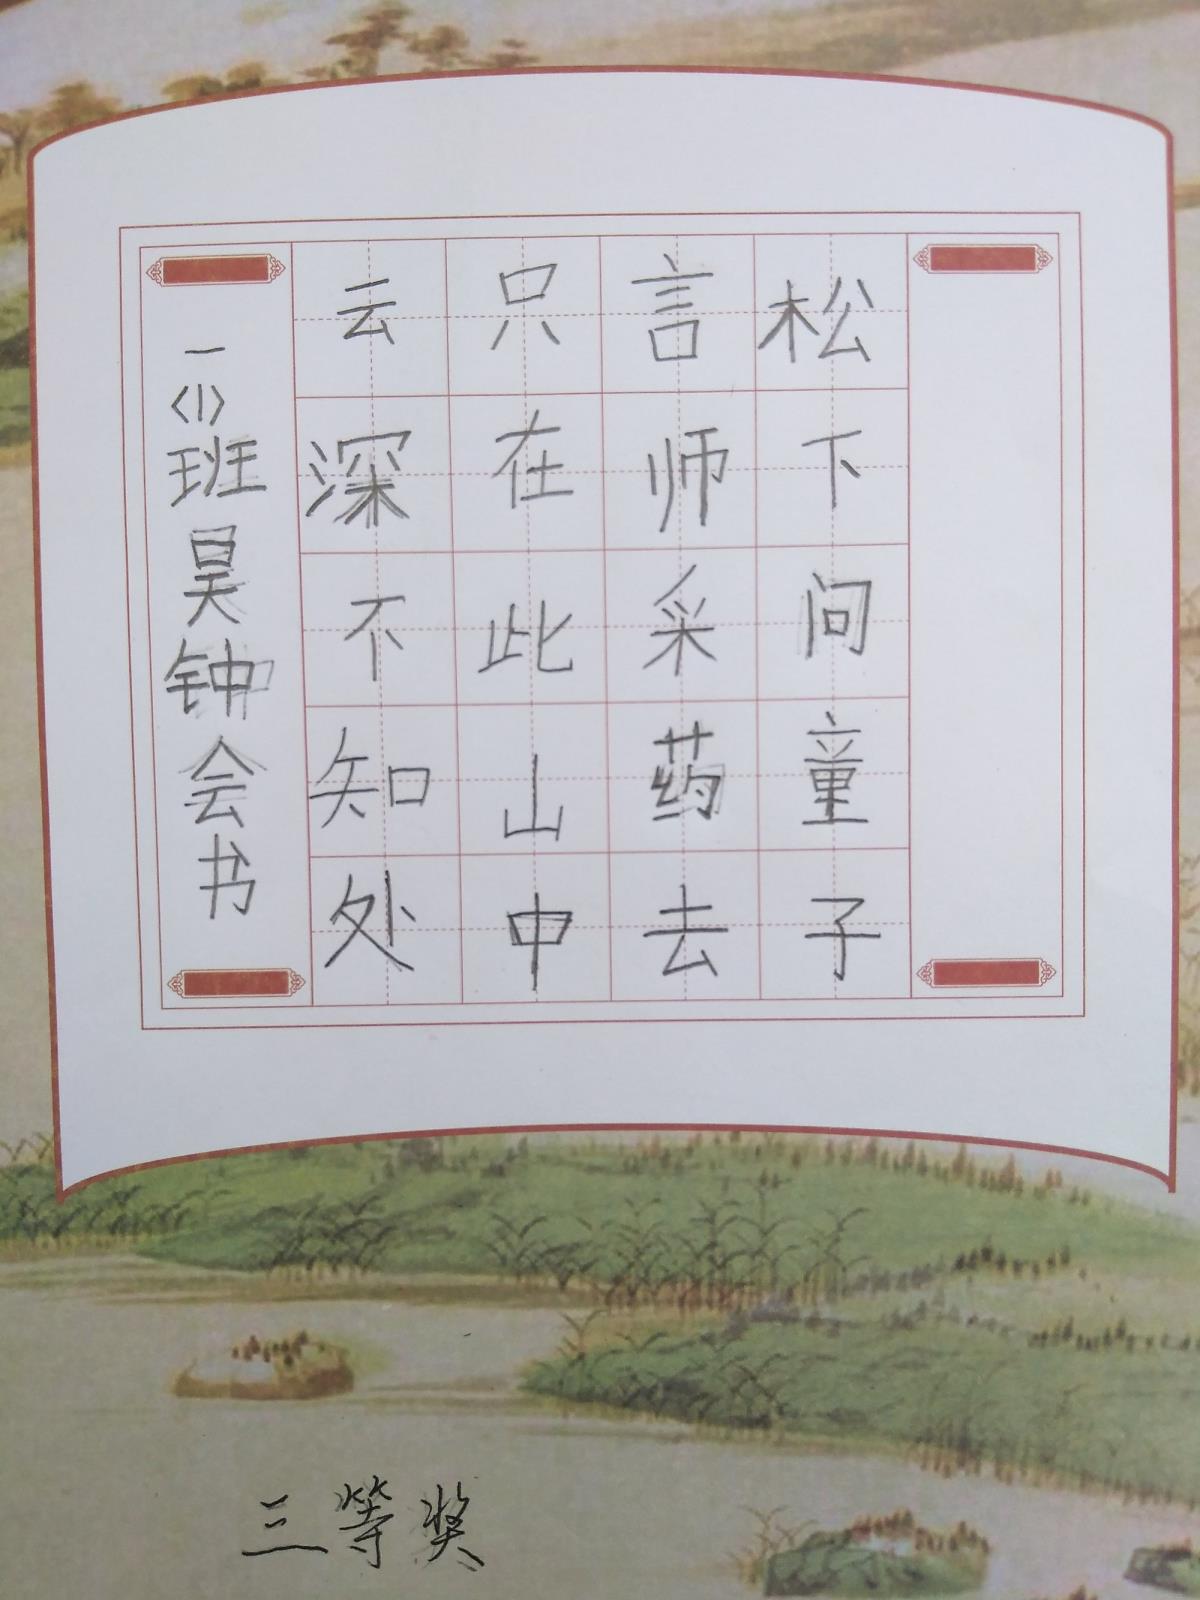 松下问童子
言师采药去
只在此山中
云深不知处
一(1)班吴钟会书
三等奖